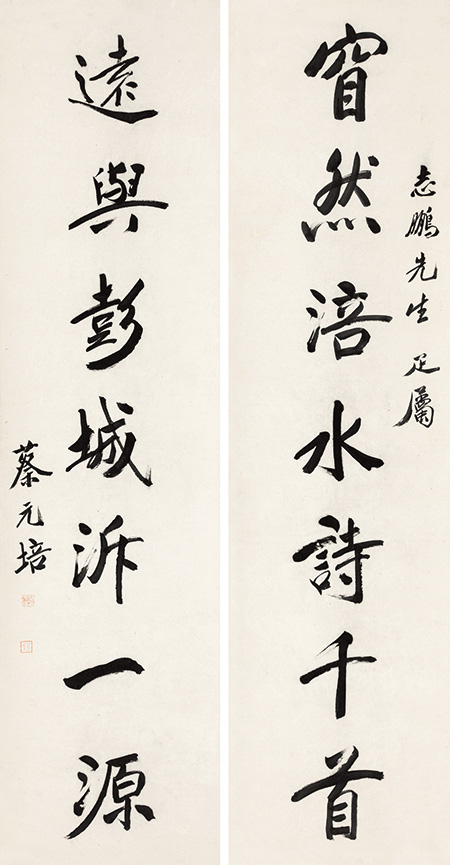 志鵬先生疋屬
窅然涪水詩千首
遠與彭城泝一源
蔡元培